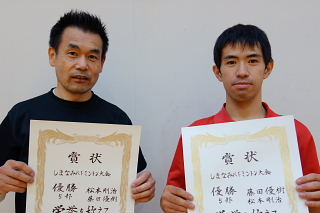 賞状
しまなみバドミントン大会
優勝 松本剛治
5部 藤田優樹
賞状
しまなみバドミントン大会
優勝 藤田優樹
5部 松本剛治